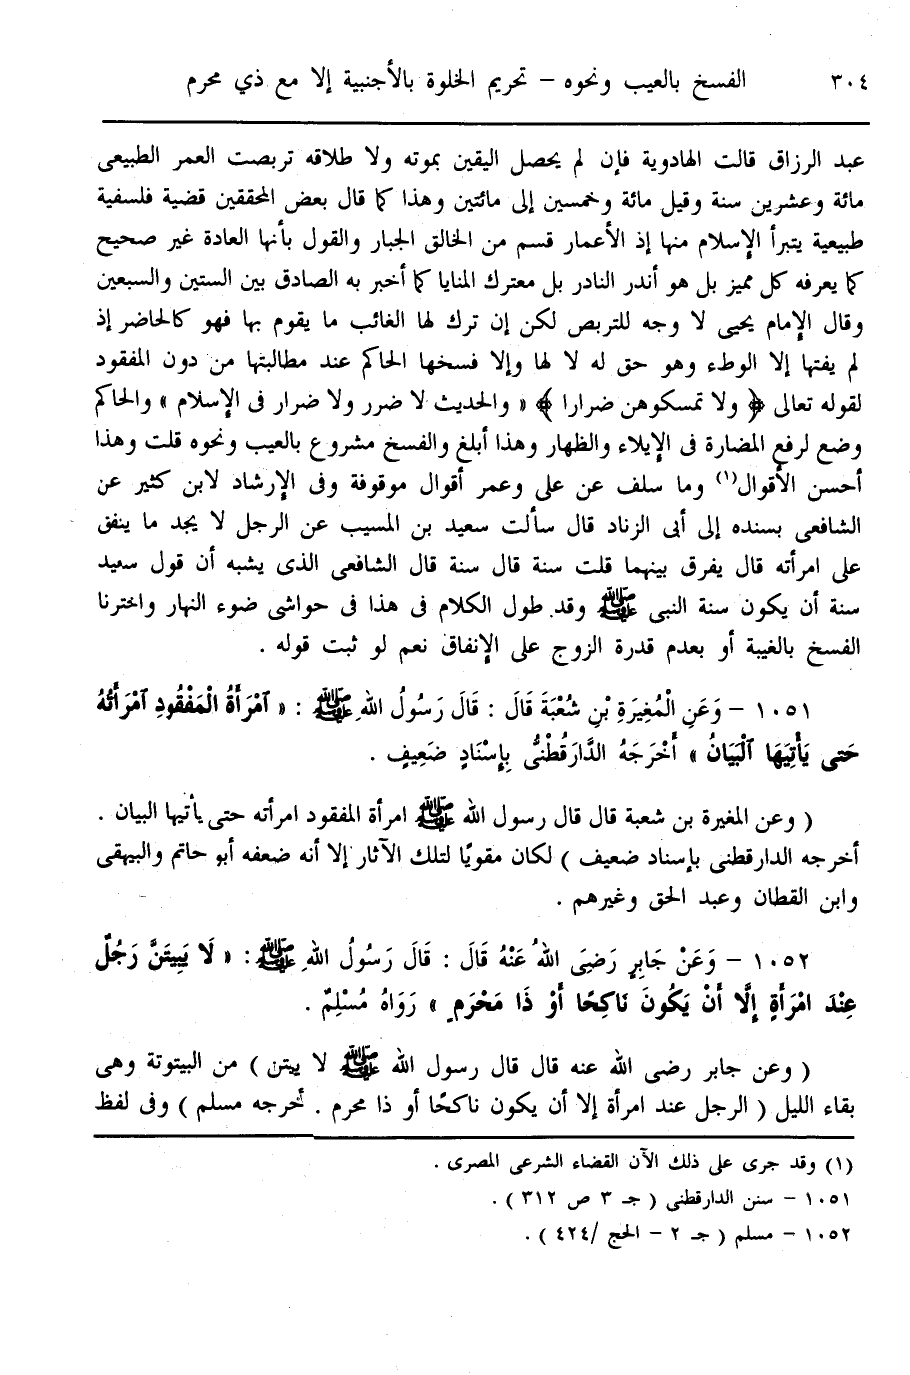 ٣٠٤ الفسخ بالعيب ونحوه – تحريم الخلوة بالأجنبية إلا مع ذي محرم
عبد الرزاق قالت الهادوية فإن لم يحصل اليقين بموته ولا طلاقه تربصت العمر الطبيعى
مائة وعشرين سنة وقيل مائة وخمسين إلى مائتين وهذا كما قال بعض المحققين قضية فلسفية
طبيعية يتبرأ الإسلام منها إذ الأعمار قسم من الخالق الجبار والقول بأنها العادة غير صحيح
كما يعرفه كل مميز بل هو أندر النادر بل معترك المنايا كما أخبر به الصادق بين الستين والسبعين
وقال الإمام يحيى لا وجه للتربص لكن إن ترك لها الغائب ما يقوم بها فهو كالحاضر إذ
لم يفتها إلا الوطء وهو حق له لا لها وإلا فسخها الحاكم عند مطالبتها من دون المفقود
لقوله تعالى ﴿ ولا تمسكوهن ضرارا ﴾ « والحديث لا ضرر ولا ضرار فى الإسلام » والحاكم
وضع لرفع المضارة فى الإيلاء والظهار وهذا أبلغ والفسخ مشروع بالعيب ونحوه قلت وهذا
أحسن الأقوال(١) وما سلف عن على وعمر أقوال موقوفة وفى الإرشاد لابن كثير عن
الشافعى بسنده إلى أبى الزناد قال سألت سعيد بن المسيب عن الرجل لا يجد ما ينفق
على امرأته قال يفرق بينهما قلت سنة قال سنة قال الشافعى الذى يشبه أن قول سعيد
سنة أن يكون سنة النبى ﷺ وقد طول الكلام فى هذا فى حواشى ضوء النهار واخترنا
الفسخ بالغيبة أو بعدم قدرة الزوج على الإنفاق نعم لو ثبت قوله .
١٠٥١ – وَعَنِ الْمُغِيرَةِ بْنِ شُعْبَةَ قَالَ : قَالَ رَسُولُ اللهِ ﷺ : « ٱمْرَأَةُ الْمَفْقُودِ ٱمْرَأَتُهُ
حَتى يَأْتِيَهَا ٱلْبَيَانُ » أَخْرَجَهُ الدَّارَقُطْنُى بِإِسْنَادٍ ضَعِيفٍ .
( وعن المغيرة بن شعبة قال قال رسول الله ﷺ امرأة المفقود امرأته حتى يأتيها البيان .
أخرجه الدارقطنى بإسناد ضعيف ) لكان مقويًا لتلك الآثار إلا أنه ضعفه أبو حاتم والبيهقى
وابن القطان وعبد الحق وغيرهم .
١٠٥٢ – وَعَنْ جَابِرٍ رَضِىَ اللهُ عَنْهُ قَالَ : قَالَ رَسُولُ اللهِ ﷺ : « لَا يَبِيتَنَّ رَجُلٌ
عِنْدَ امْرَأَةٍ إِلَّا أَنْ يَكُونَ نَاكِحًا أَوْ ذَا مَحْرَمٍ » رَوَاهُ مُسْلِمٌ .
( وعن جابر رضى الله عنه قال قال رسول الله ﷺ لا يبيتن ) من البيتوتة وهى
بقاء الليل ( الرجل عند امرأة إلا أن يكون ناكحًا أو ذا محرم . أخرجه مسلم ) وفى لفظ
(١) وقد جرى على ذلك الآن القضاء الشرعى المصرى .
١٠٥١ – سنن الدارقطنى ( جـ ٣ ص ٣١٢ ) .
١٠٥٢ – مسلم ( جـ ٢ – الحج /٤٢٤ ) .